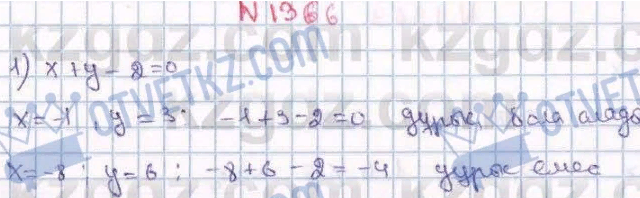 N 1366
1) x+y-2=0
x=-1, y=3; -1+3-2=0 дұрыс, бола алады
x=-8; y=6; -8+6-2=-4 дұрыс емес
kzgoz.com
OTVETKZ.COM